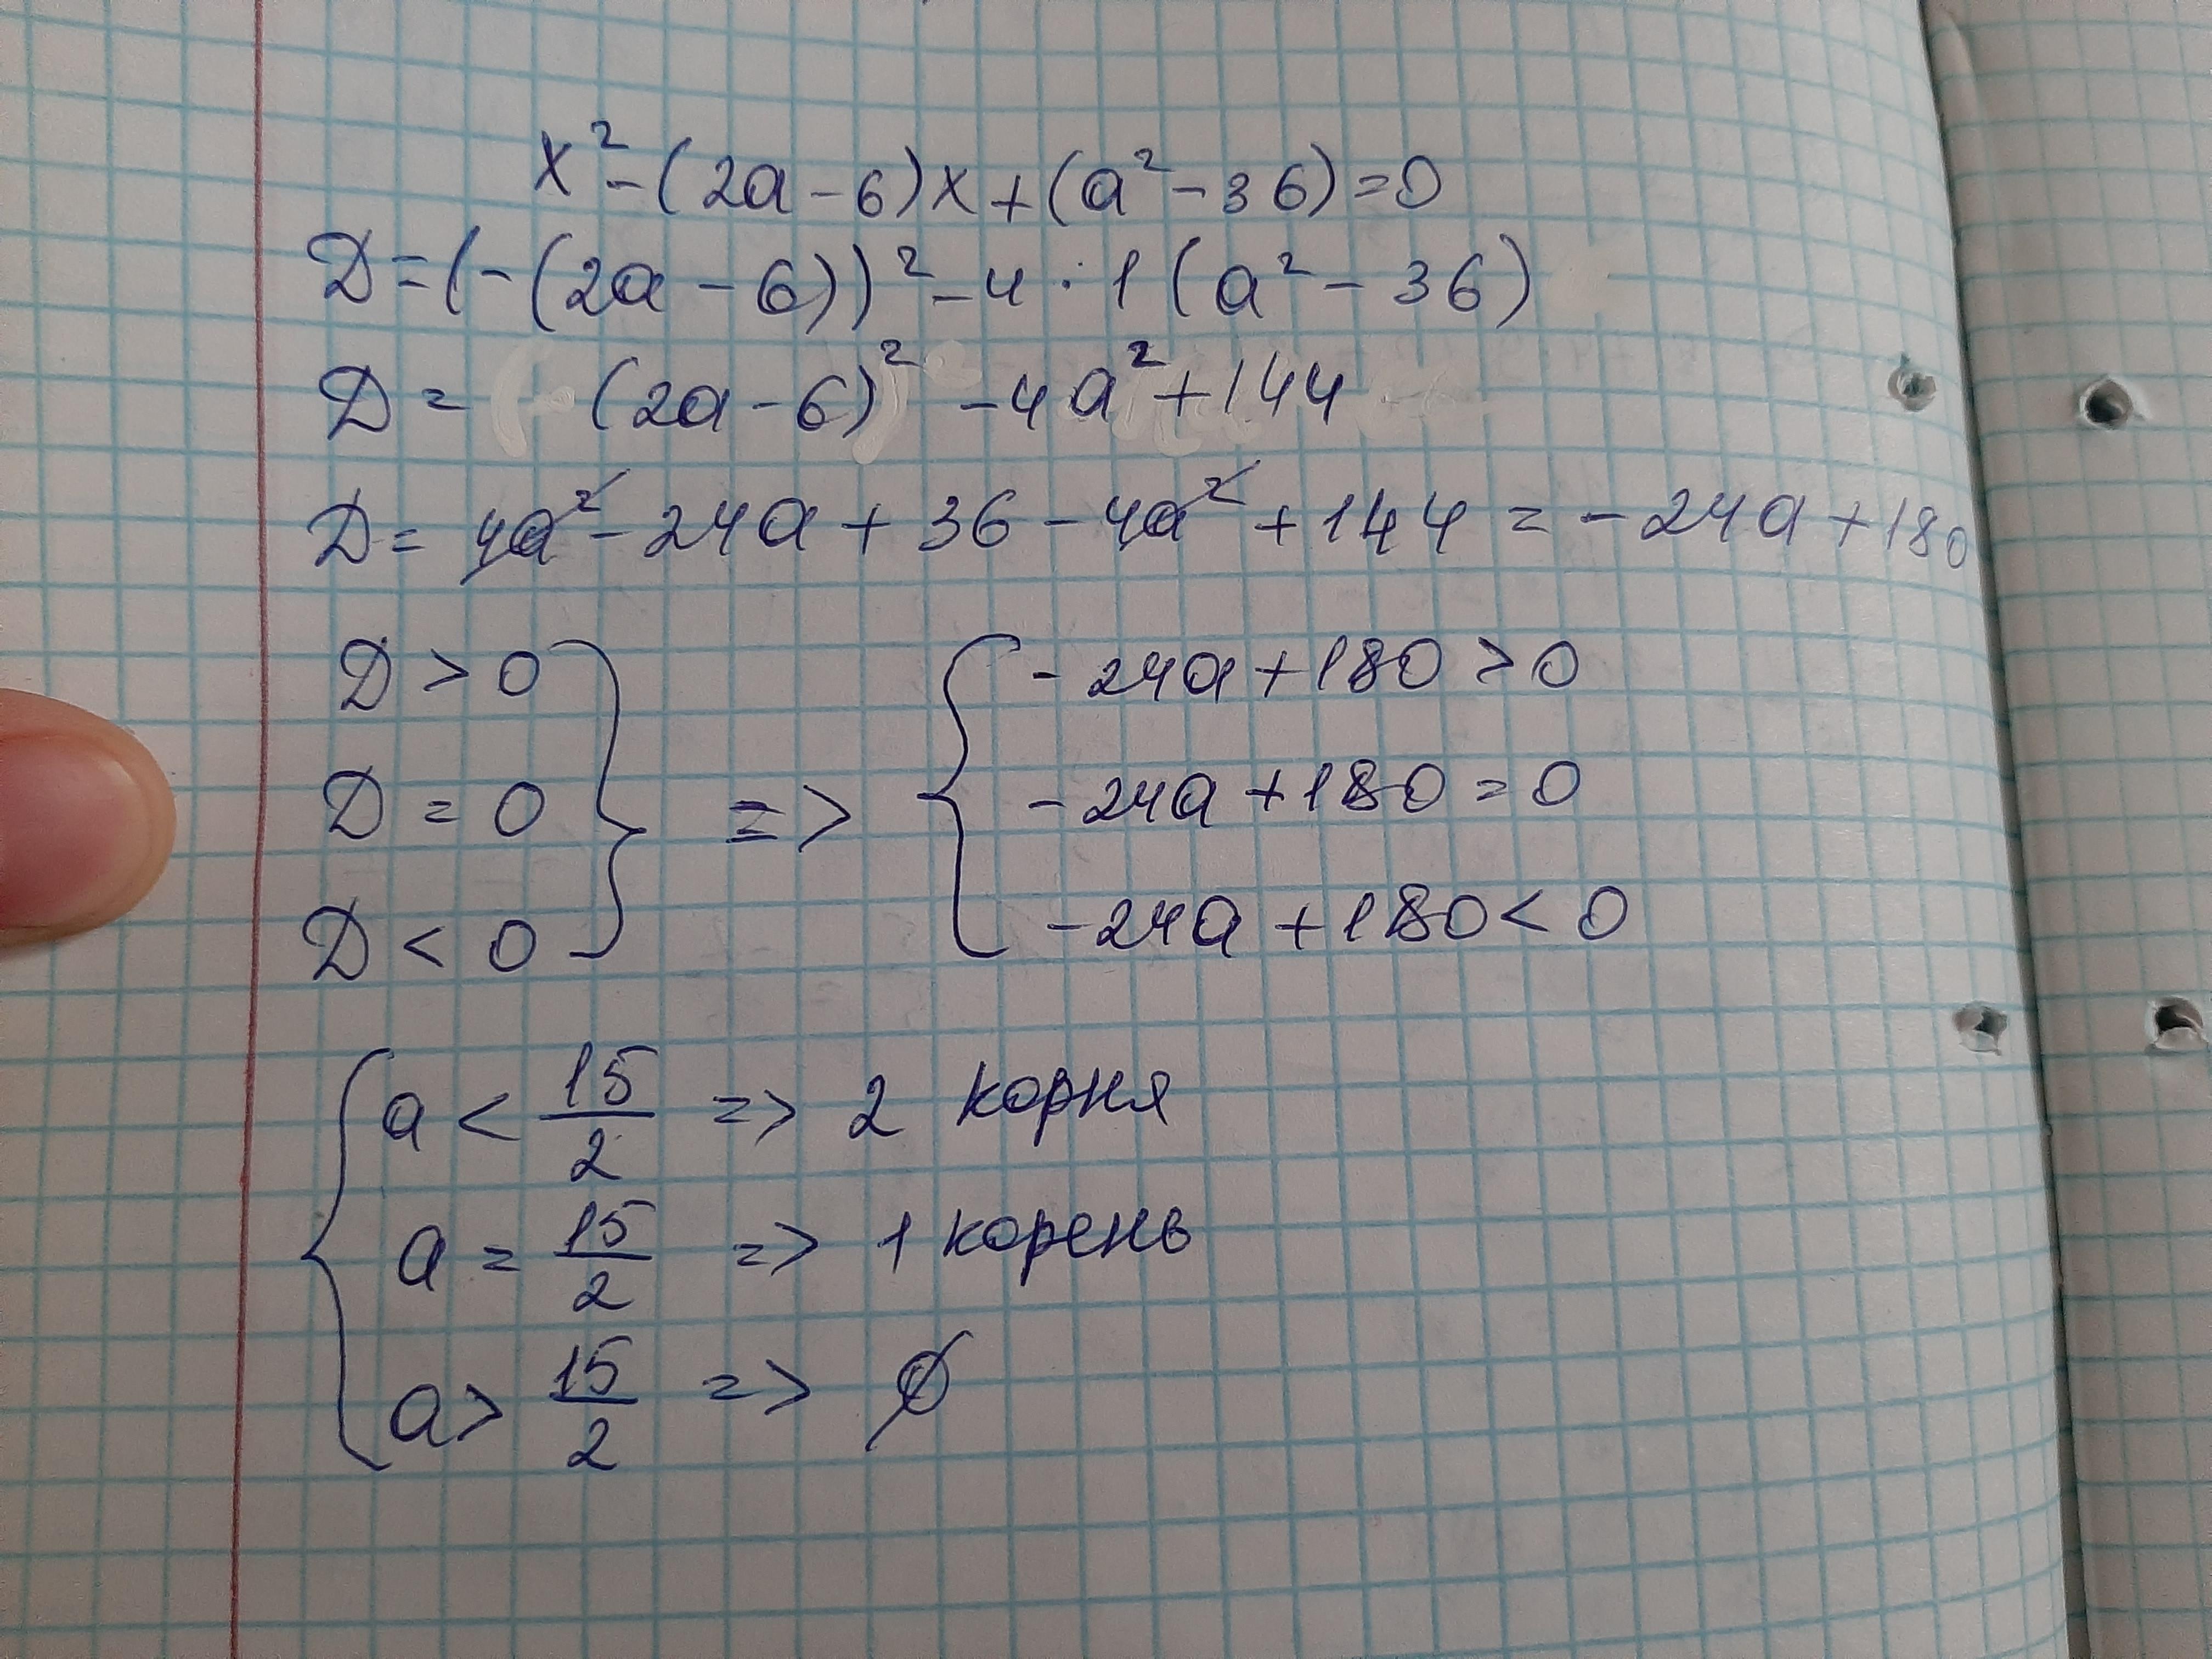 x² - (2a - 6)x + (a² - 36) = 0
D = (-(2a - 6))² - 4 · 1 (a² - 36)
D = (2a - 6)² - 4a² + 144
D = 4a² - 24a + 36 - 4a² + 144 = -24a + 180
D > 0 } => { -24a + 180 > 0
D = 0 -24a + 180 = 0
D < 0 -24a + 180 < 0
{ a < 15/2 => 2 корня
a = 15/2 => 1 корень
a > 15/2 => ∅